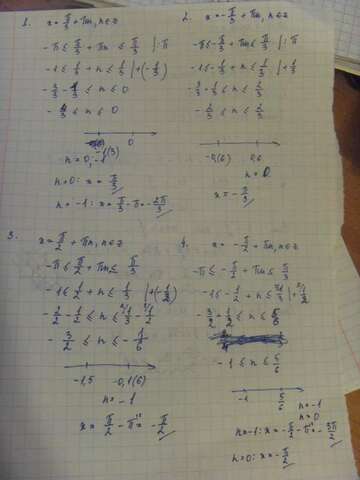 1. x = π/3 + πn, n∈z
-π ≤ π/3 + πn ≤ π/3 |:π
-1 ≤ 1/3 + n ≤ 1/3 |+(-1/3)
-3/3 - 1/3 ≤ n ≤ 0
-4/3 ≤ n ≤ 0
-1(3) 0
n = 0, -1
n=0: x = π/3
n = -1: x = π/3 - π = -2π/3
2. x = -π/3 + πn, n∈z
-π ≤ -π/3 + πn ≤ π/3 |:π
-1 ≤ -1/3 + n ≤ 1/3 |+1/3
-3/3 + 1/3 ≤ n ≤ 2/3
-2/3 ≤ n ≤ 2/3
-0,(6) 0,6
n = 0
x = -π/3
3. x = π/2 + πn, n∈z
-π ≤ π/2 + πn ≤ π/3
-1 ≤ 1/2 + n ≤ 1/3 |+(-1/2)
-2/2 - 1/2 ≤ n ≤ 1/3 - 1/2
-3/2 ≤ n ≤ -1/6
-1,5 -0,1(6)
n = -1
x = π/2 - π = -π/2
4. x = -π/2 + πn, n∈z
-π ≤ -π/2 + πn ≤ π/3
-1 ≤ -1/2 + n ≤ 1/3 |+1/2
≤ n ≤ 5/6
-1 ≤ n ≤ 5/6
-1 5/6
n = -1
n = 0
n=-1: x = -π/2 - π = -3π/2
n=0: x = -π/2